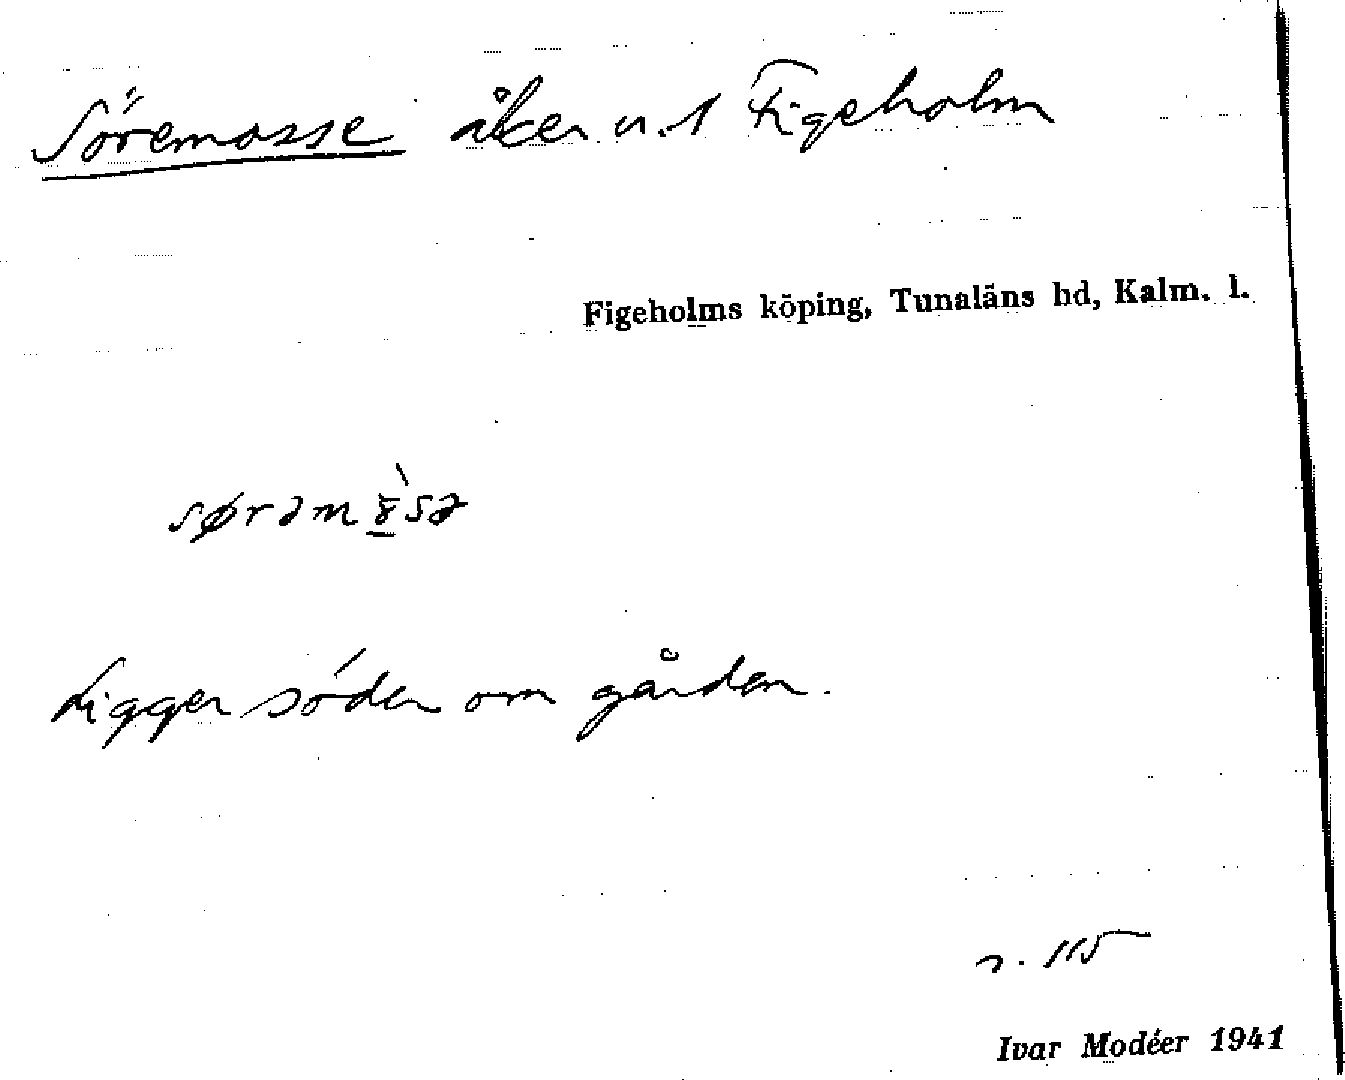 Söremosse åker u. 1 Figeholm
Figeholms köping, Tunaläns hd, Kalm. l.
Ligger söder om gården.
s. 115
Ivar Modéer 1941